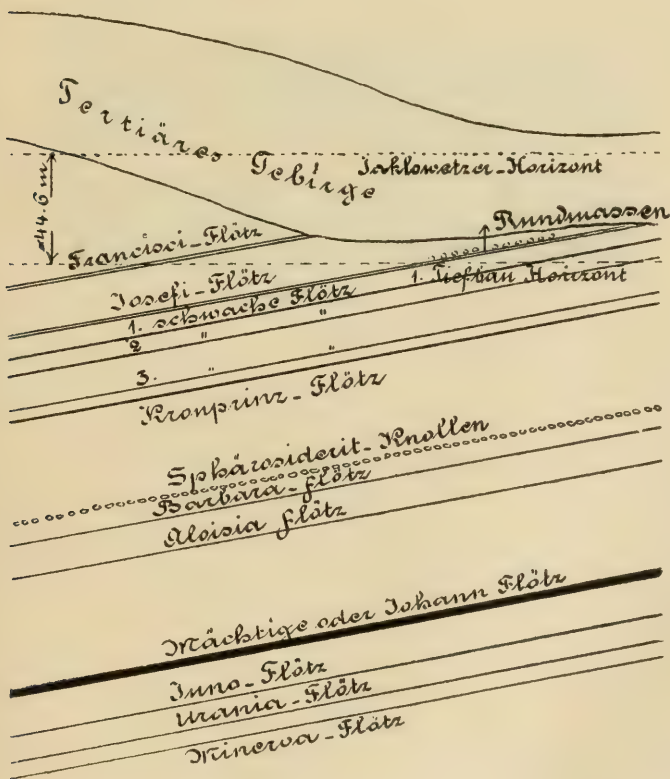 Tertiäres Gebirge
Jaklowetzer-Horizont
44.6 m
Rundmassen
Francisci-Flötz
1. Tiefbau Horizont
Josefi-Flötz
1. schwache Flötz
2 " "
3. " "
Kronprinz-Flötz
Sphärosiderit-Knollen
Barbara-Flötz
Aloisia Flötz
Mächtige oder Johann Flötz
Juno-Flötz
Urania-Flötz
Minerva-Flötz